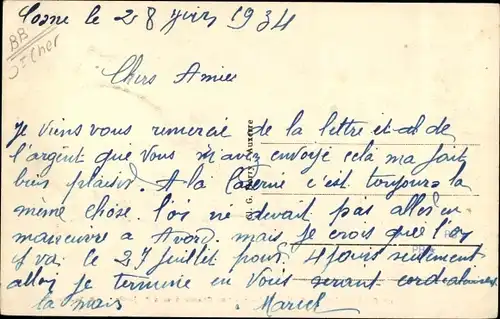 Cosne le 28 juin 1934
BB
Jt Cher
Chers Amies
Je viens vous remercié de la lettre et al de
l'argent que vous m'avez envoyé celà ma fait
bien plaisir. A la caserne c'est toujours la
même chose. l'on ne devait pas aller en
manœuvre a Avord. mais je crois que l'on
y va le 27 Juillet pour 4 jours seulement
allos je termine en vous serant cordialement
la main Marcel